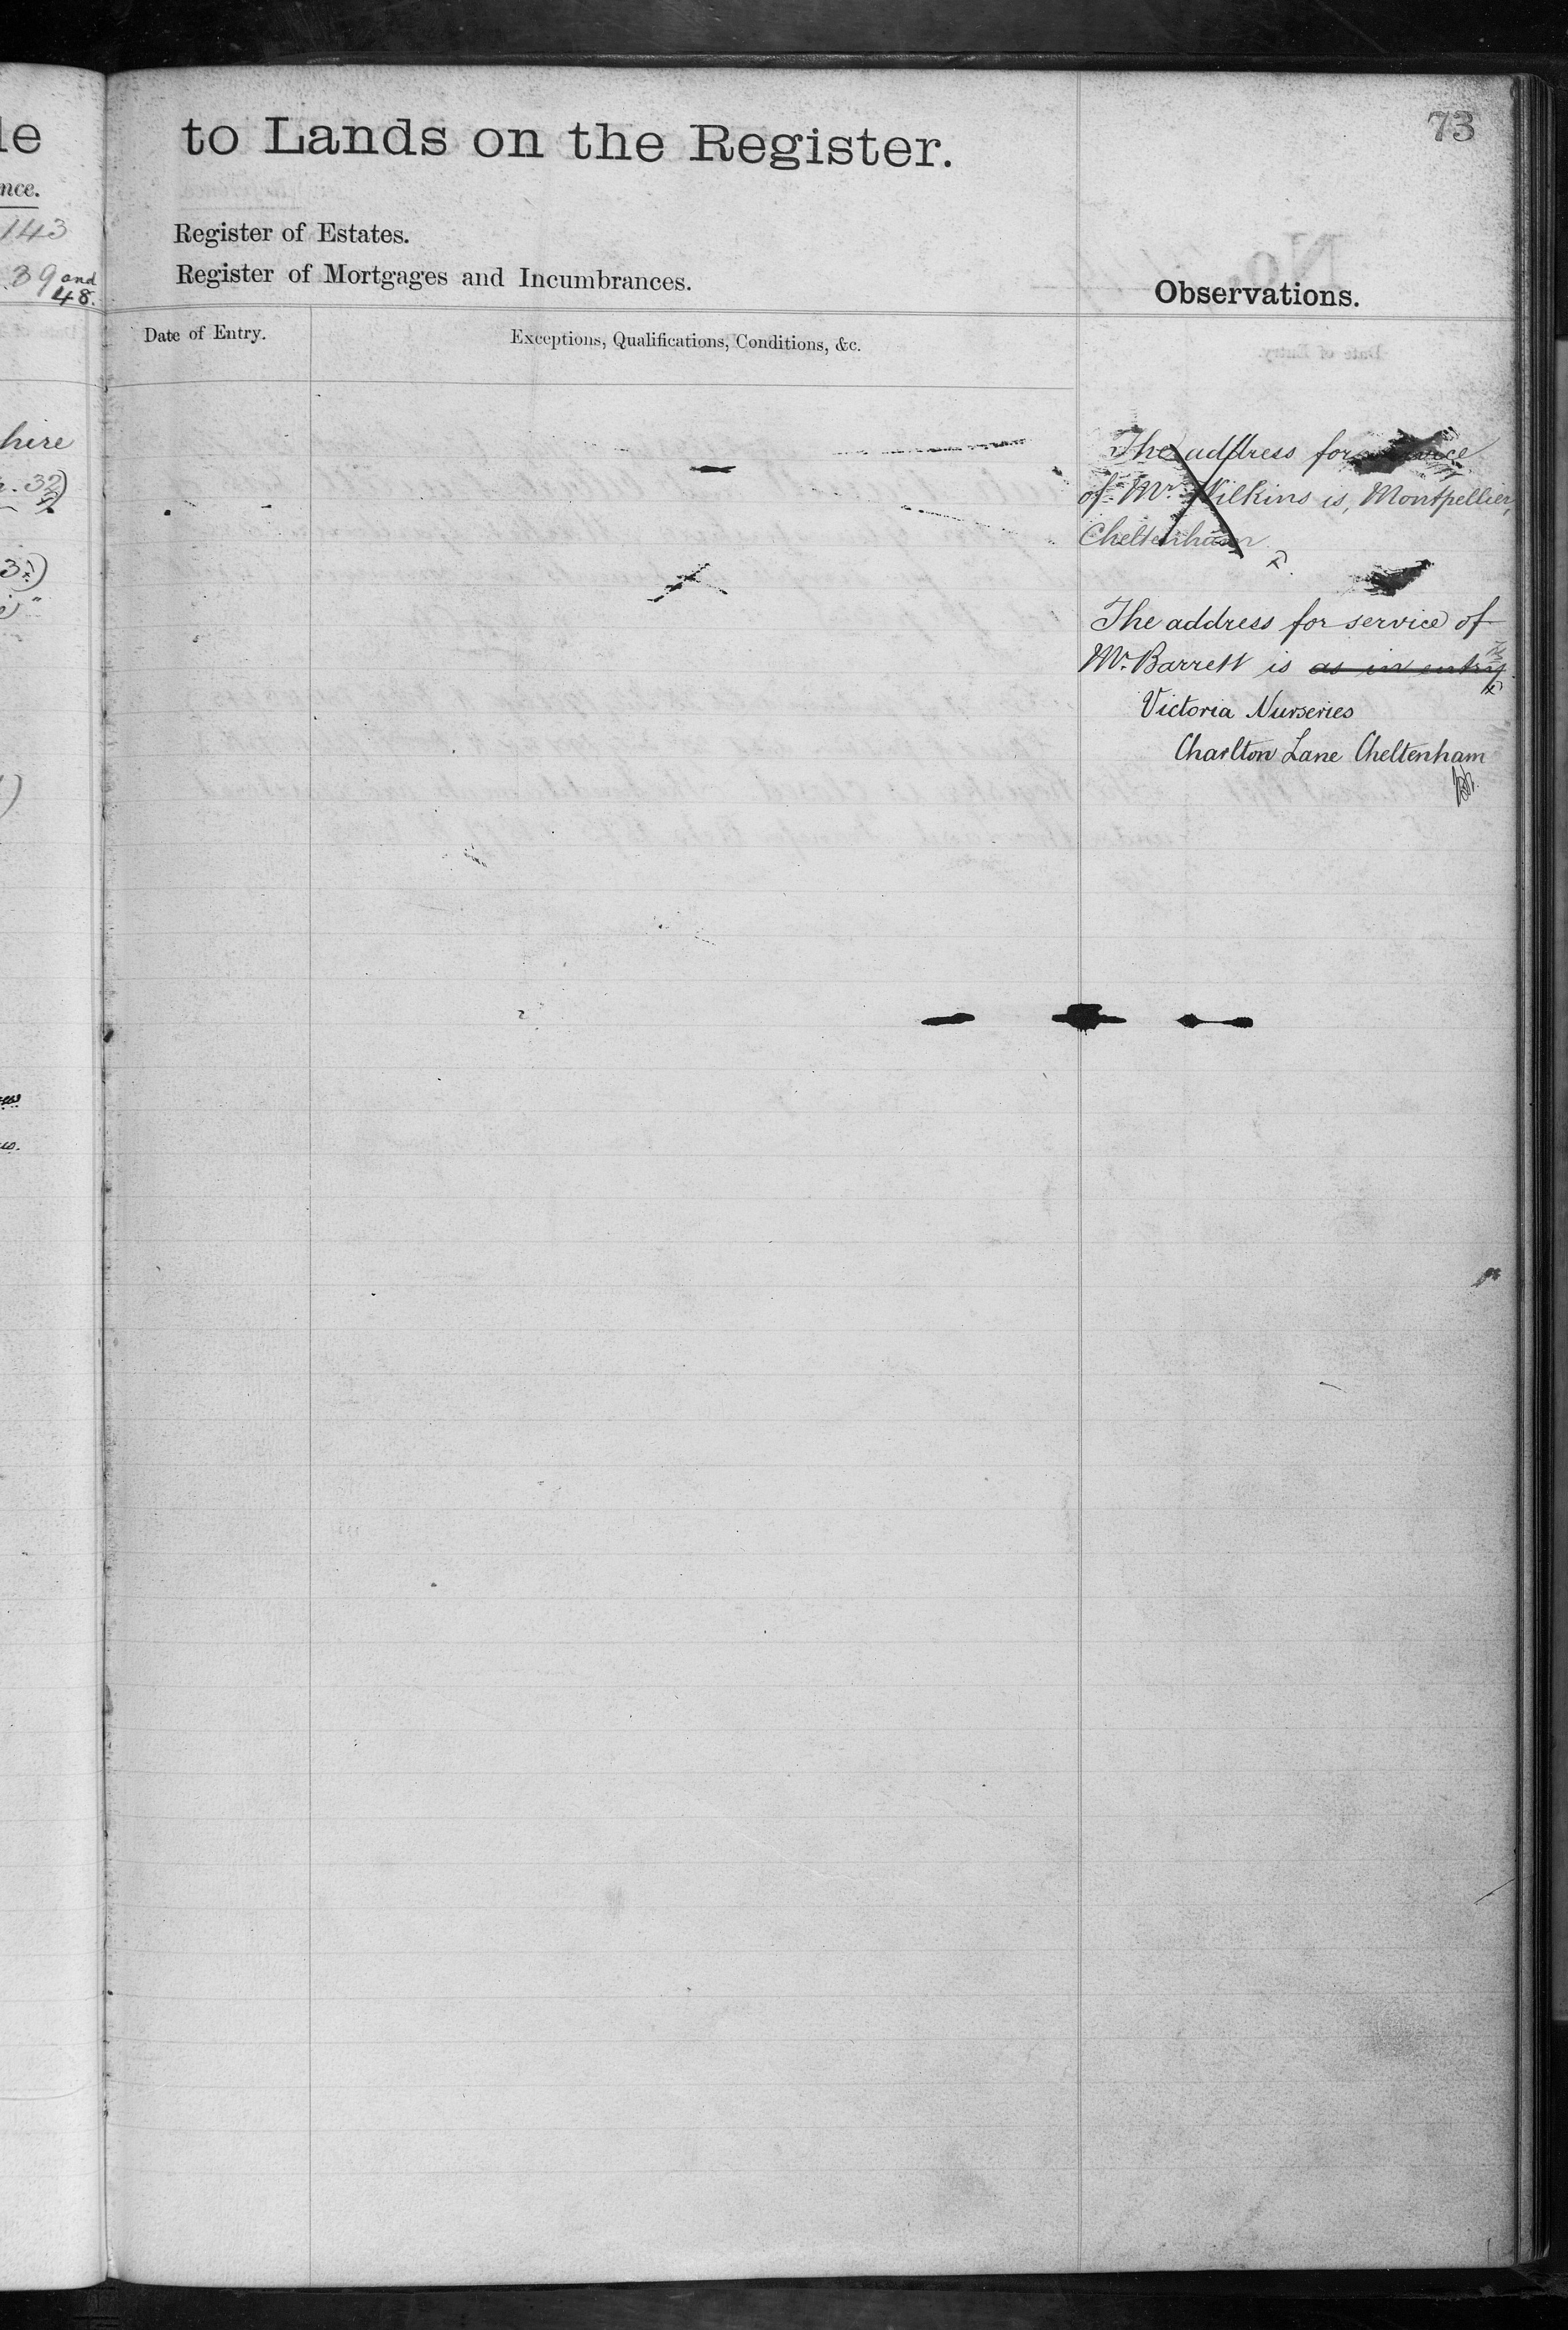 73
to Lands on the Register.
Register of Estates.
Register of Mortgages and Incumbrances.
Observations.
Date of Entry.
Exceptions, Qualifications, Conditions, &c.
The address for service
of Mr. Wilkins is, Montpellier,
Cheltenham
The address for service of
Mr. Barrett is as in entry
Victoria Nurseries
Charlton Lane Cheltenham
le
nce.
143
39 and
48.
hire
32)
3)